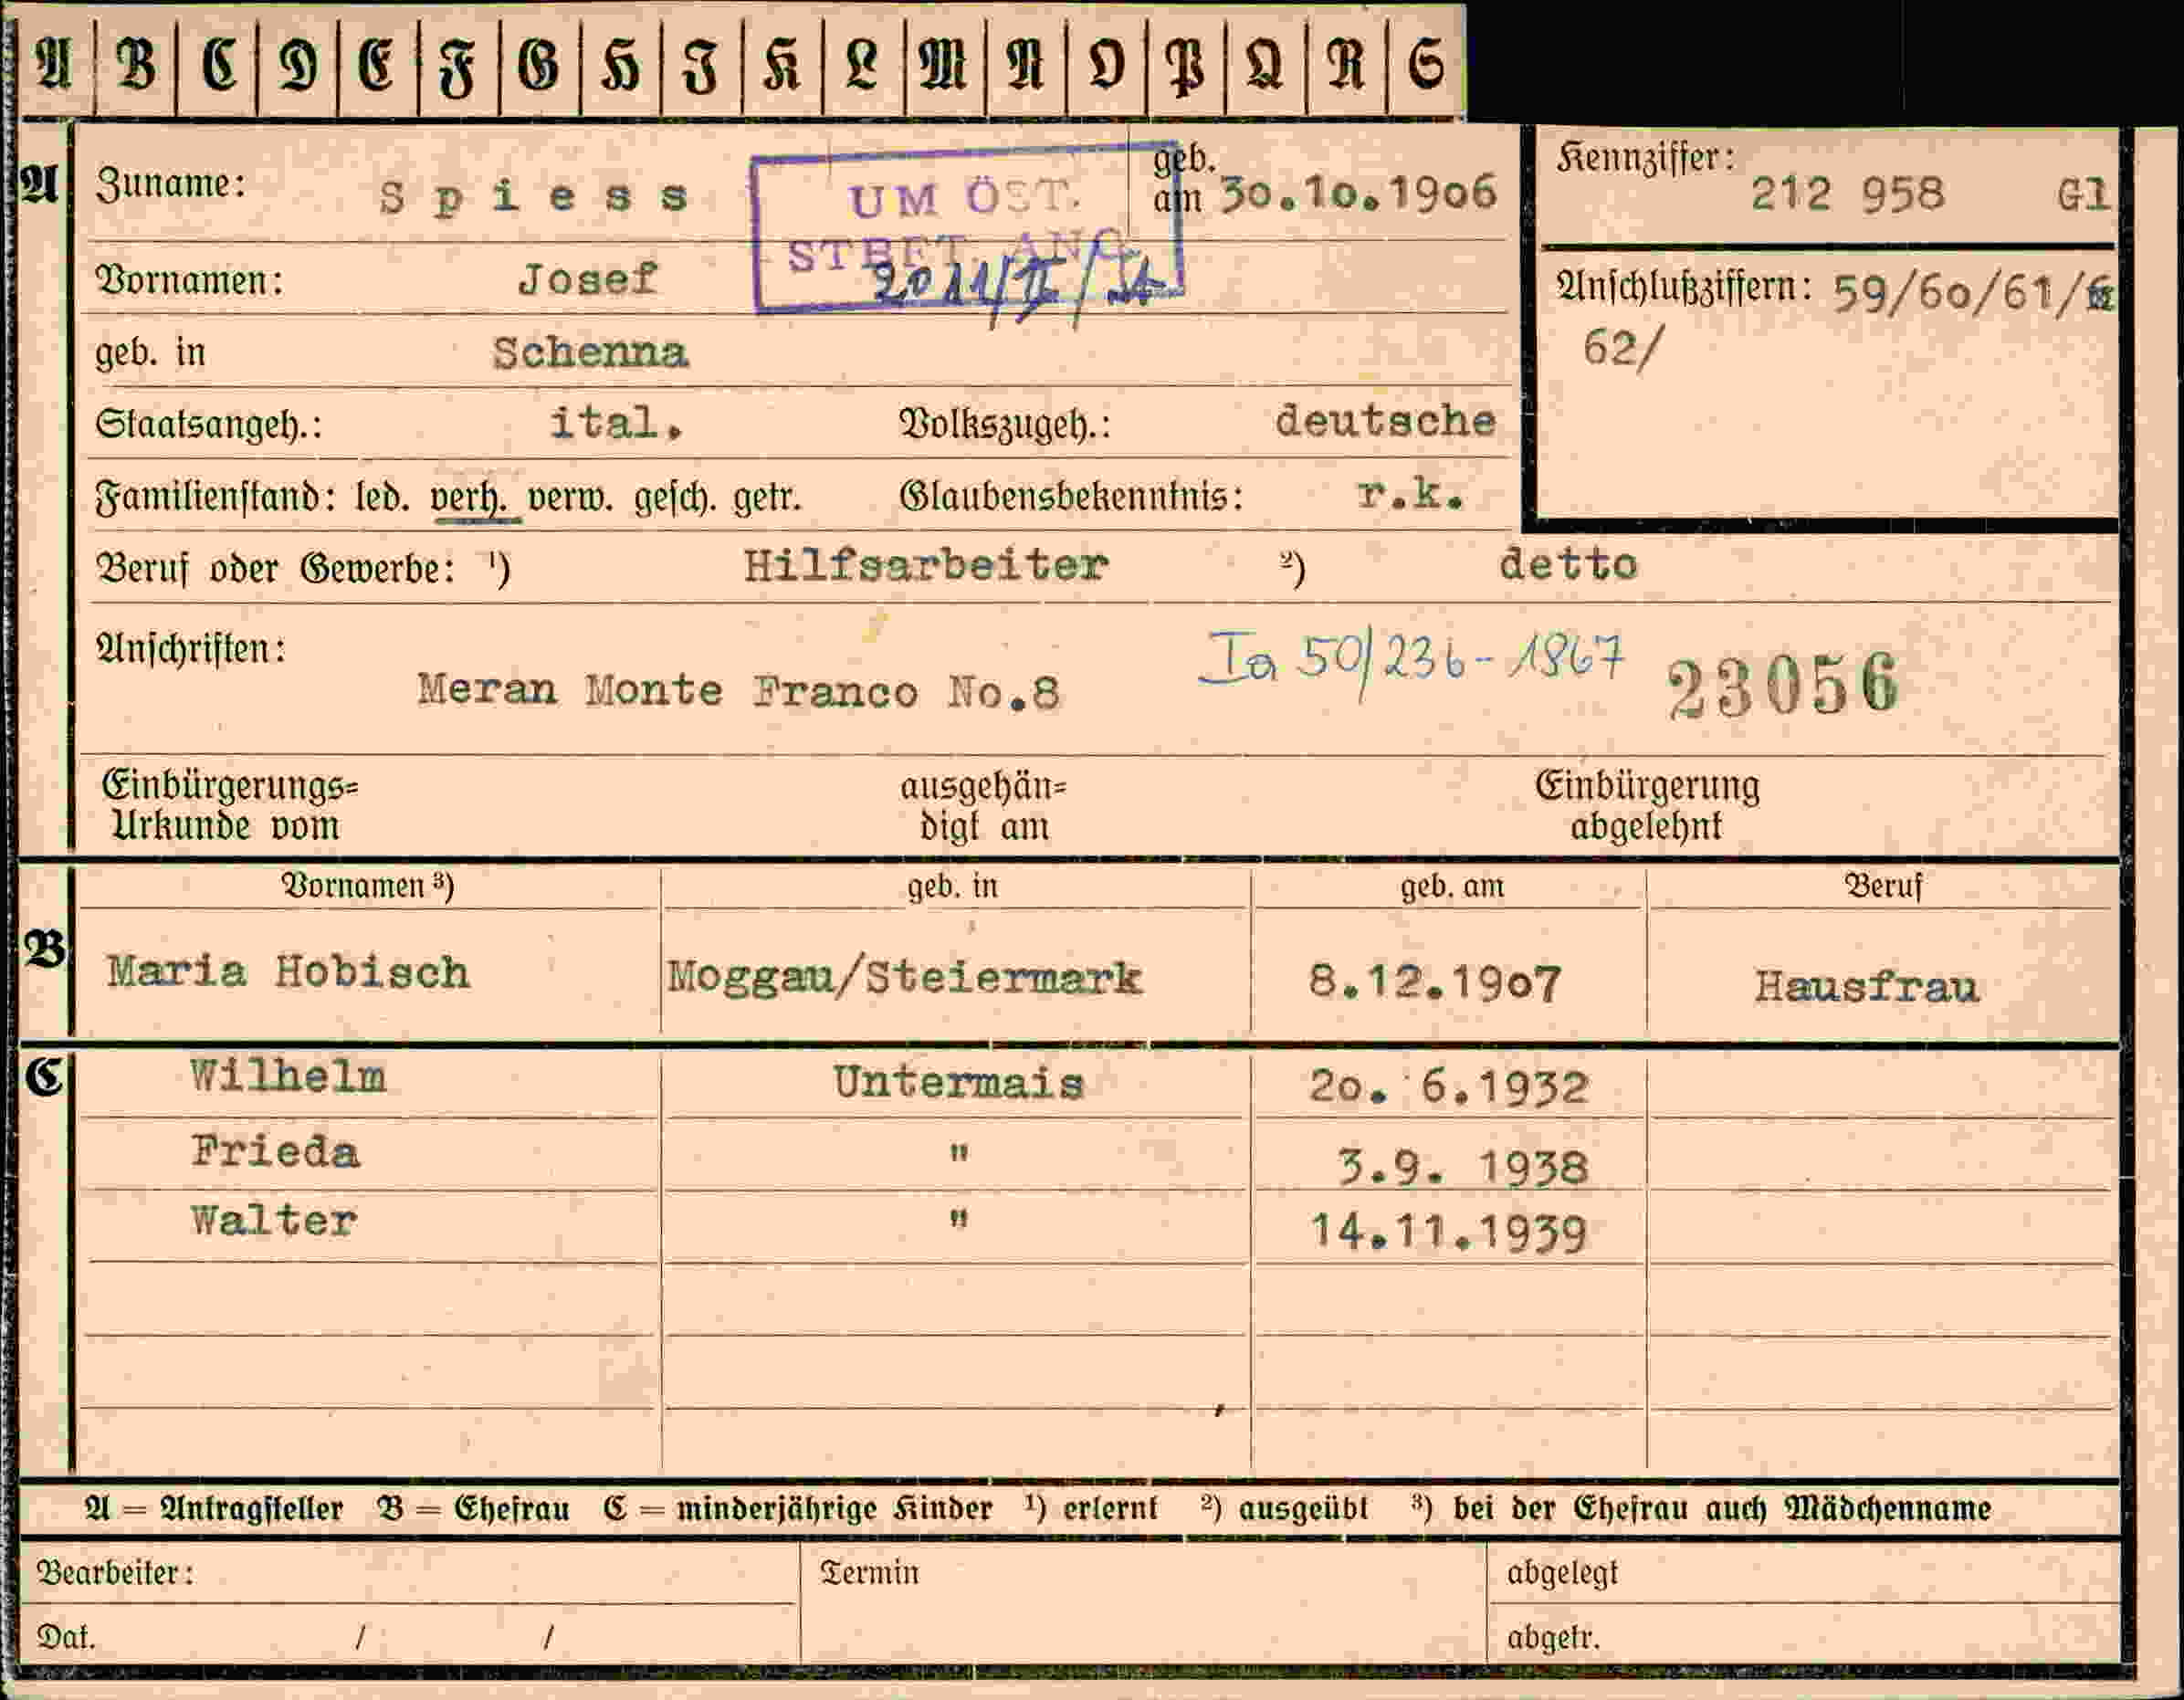 A B C D E F G H I K L M N O P Q R S
A Zuname: Spiess geb. am 30.10.1906
UM ÖST.
STBFT. ANG.
Kennziffer: 212 958 Gl
Vornamen: Josef
Anschlußziffern: 59/60/61/
62/
geb. in Schenna
Staatsangeh.: ital. Volkszugeh.: deutsche
Familienstand: led. verh. verw. gesch. getr. Glaubensbekenntnis: r.k.
Beruf oder Gewerbe: 1) Hilfsarbeiter 2) detto
Anschriften:
Meran Monte Franco No.8
Ia 50/236-1867 23056
Einbürgerungs=
Urkunde vom
ausgehän=
digt am
Einbürgerung
abgelehnt
Vornamen 3) geb. in geb. am Beruf
B Maria Hobisch Moggau/Steiermark 8.12.1907 Hausfrau
C Wilhelm Untermais 20. 6.1932
Frieda " 3.9. 1938
Walter " 14.11.1939
A = Antragsteller B = Ehefrau C = minderjährige Kinder 1) erlernt 2) ausgeübt 3) bei der Ehefrau auch Mädchenname
Bearbeiter: Termin abgelegt
Dat. / / abgetr.